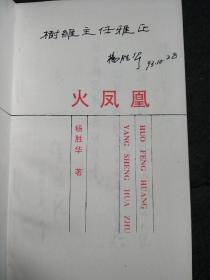 樹雄主任雅正
杨胜华
93.10.28
火凤凰
杨胜华 著
HUO FENG HUANG
YANG SHENG HUA ZHU